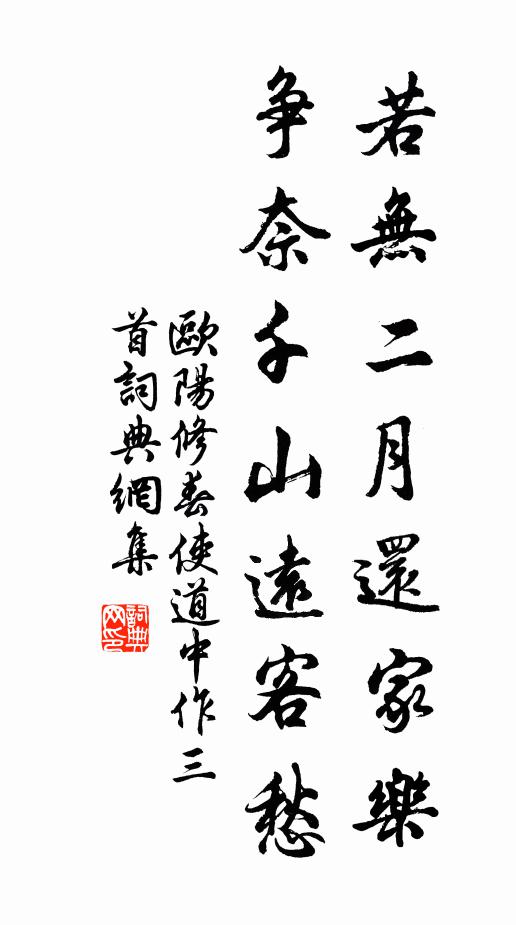 若無二月還家樂
争奈千山遠客愁
歐陽修奉使道中作三
首詞典網集
詞典
网印